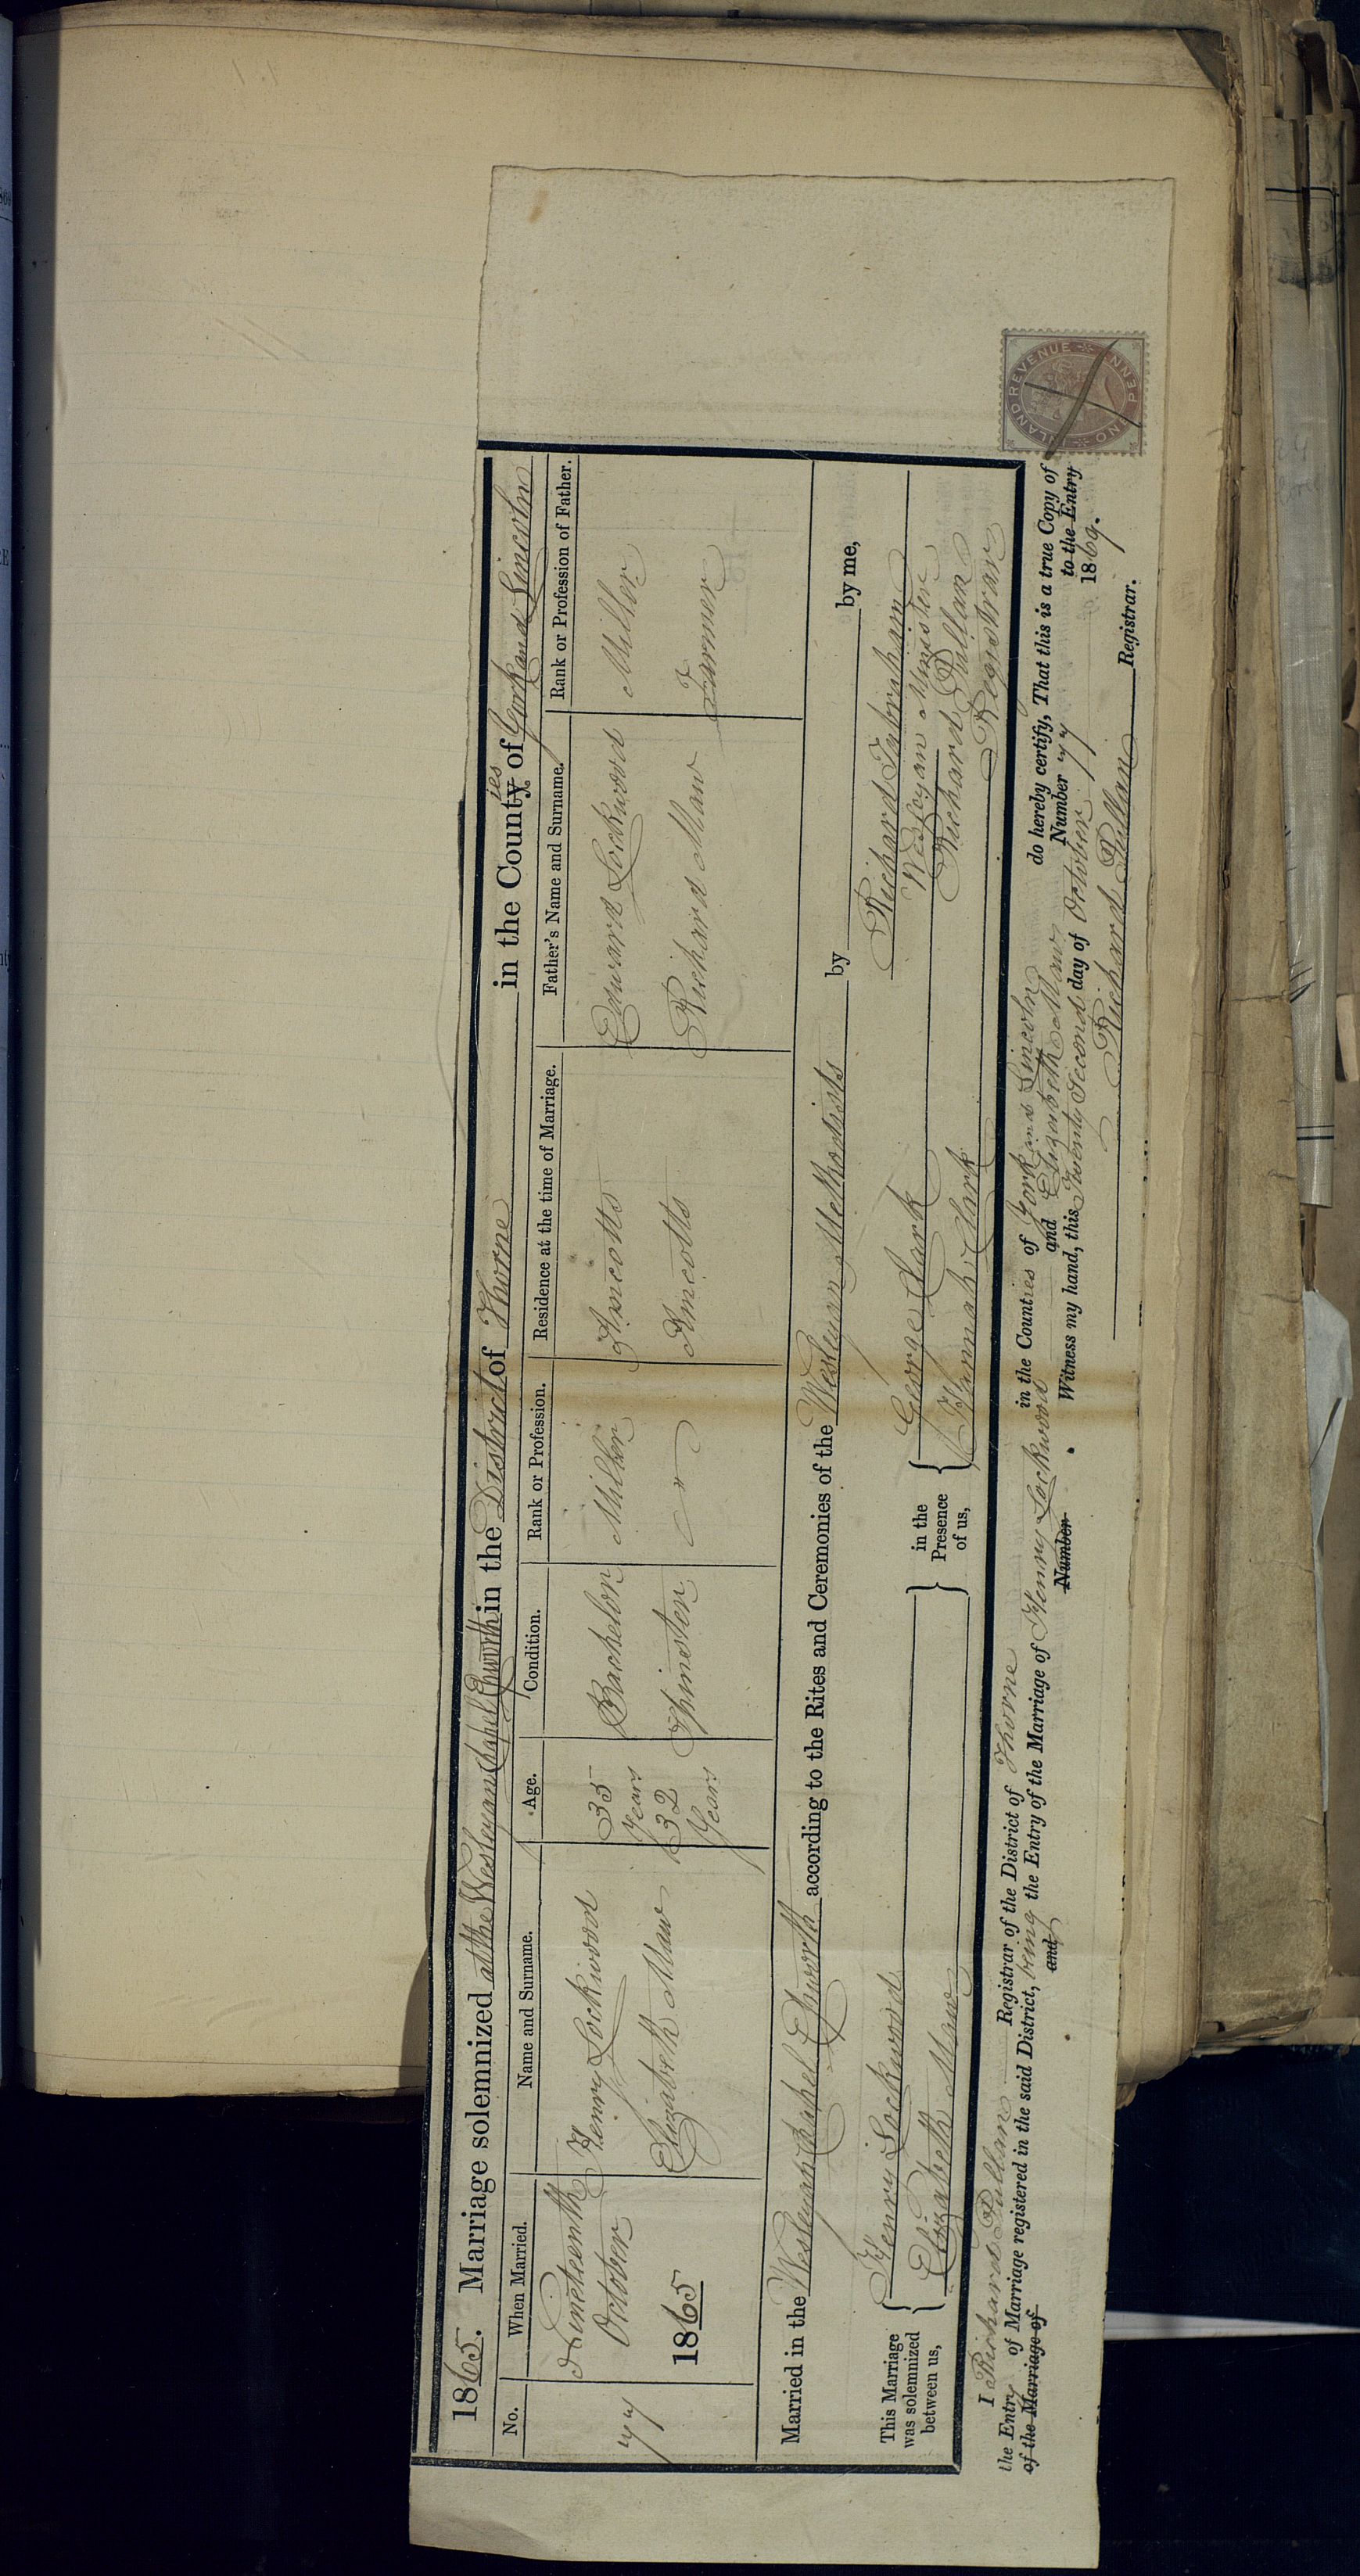 1865. Marriage solemnized at the Wesleyan Chapel Epworth in the District of Thorne in the County ies of York and Lincoln
No. When Married. Name and Surname. Age. Condition. Rank or Profession. Residence at the time of Marriage. Father's Name and Surname. Rank or Profession of Father.
77 Nineteenth October 1865 Henry Lockwood 35 Years Bachelor Miller Amcotts Edward Lockwood Miller
Elizabeth Maw 32 Years Spinster " Amcotts Richard Maw Farmer
Married in the Wesleyan Chapel Epworth according to the Rites and Ceremonies of the Wesleyan Methodists by by me,
This Marriage was solemnized between us, { Henry Lockwood } in the Presence of us, { George Clark Richard
Elizabeth Maw Hannah Clark Wesleyan Minister
Richard Pullan
Registrar
I Richard Pullan Registrar of the District of Thorne in the Counties of York and Lincoln do hereby certify, That this is a true Copy of
the Entry of Marriage registered in the said District, being the Entry of the Marriage of Henry Lockwood and Elizabeth Maw Number 77
of the Marriage of and Number Witness my hand, this Twenty Second day of October 1869. to the Entry
Richard Pullan Registrar.
INLAND REVENUE
ONE PENNY